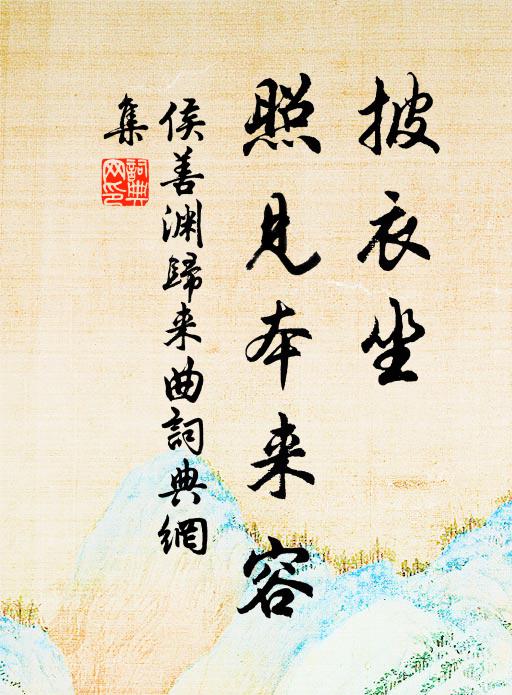 披衣坐
照見本来容
侯善渊歸来曲詞典網
集
詞典
网印